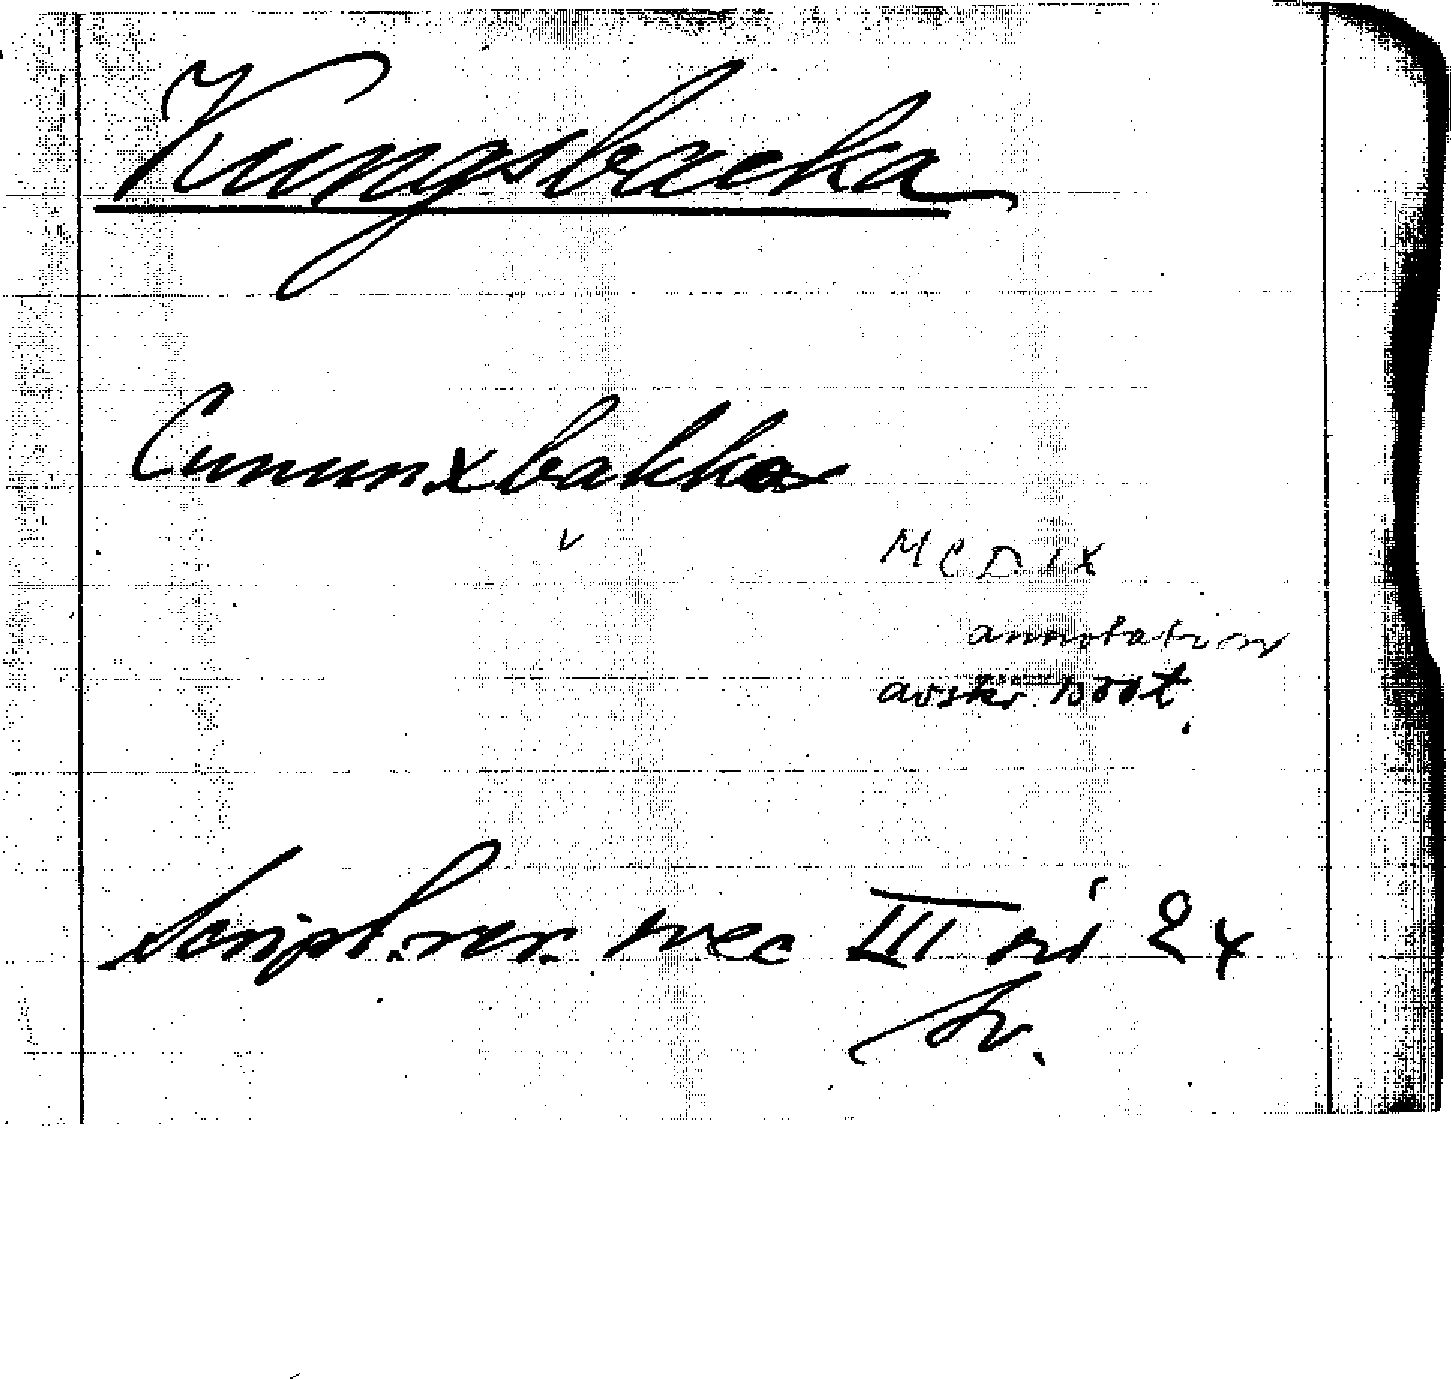 Kungsbacka
Cununxbakka
MCDIX
annotation
avskr.
Script. rer. svec III ni 24